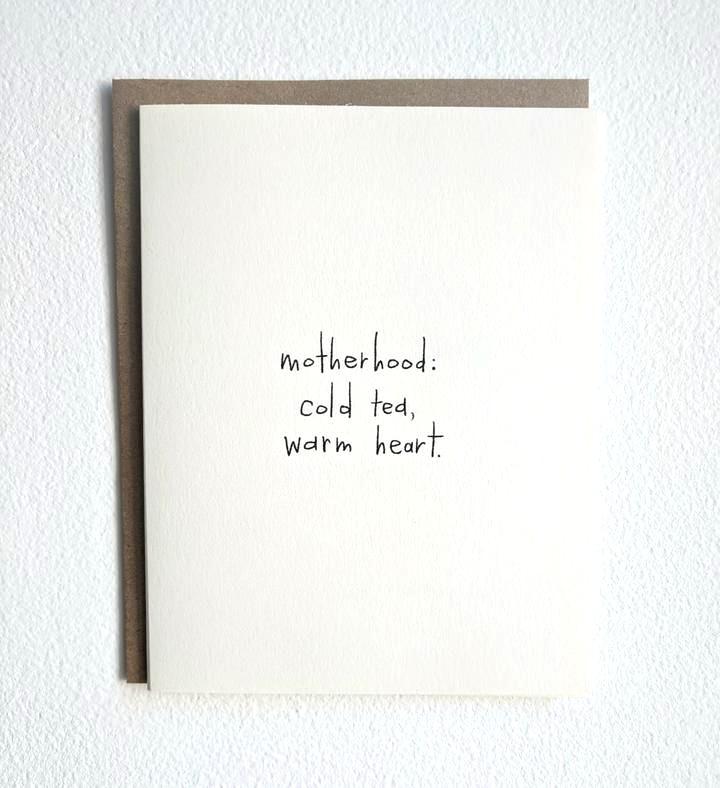 motherhood:
cold tea,
warm heart.